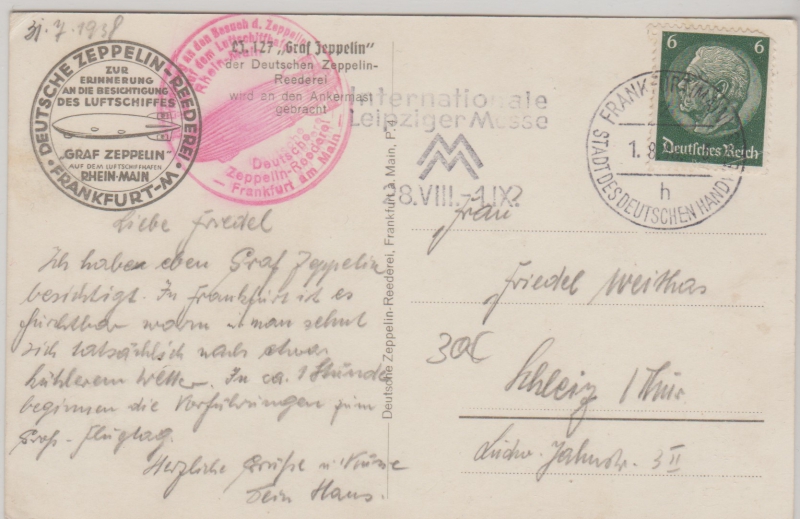 31.7.1938
DEUTSCHE ZEPPELIN-REEDEREI
ZUR
ERINNERUNG
AN DIE BESICHTIGUNG
DES LUFTSCHIFFES
„GRAF ZEPPELIN"
AUF DEM LUFTSCHIFFHAFEN
RHEIN-MAIN
FRANKFURT-M
an den Besuch d. Zeppelin
dem Luftschiffhafen
Rhein
Deutsche
Zeppelin-Reederei
Frankfurt am Main
LZ. 127 „Graf Zeppelin"
der Deutschen Zeppelin-
Reederei
wird an den Ankermast
gebracht
Internationale
Leipziger Messe
28.VIII.-1.IX.
6 6
Deutsches Reich
FRANKFURT (MAIN)
1.8.
h
STADT DES DEUTSCHEN HAND
Liebe Friedel
Ich habe eben Graf Zeppelin
besichtigt. In Frankfurt ist es
furchtbar warm u. man sehnt
sich tatsächlich nach etwas
kühlerem Wetter. In ca. 1 Stunde
beginnen die Vorführungen zum
Groß-Flugtag.
Herzliche Grüße u. Küsse
Dein Hans.
Deutsche Zeppelin-Reederei, Frankfurt a. Main, P.
Frau
Friedel Weithas
30C
Schleiz / Thür.
Ludw.-Jahnstr. 3 II